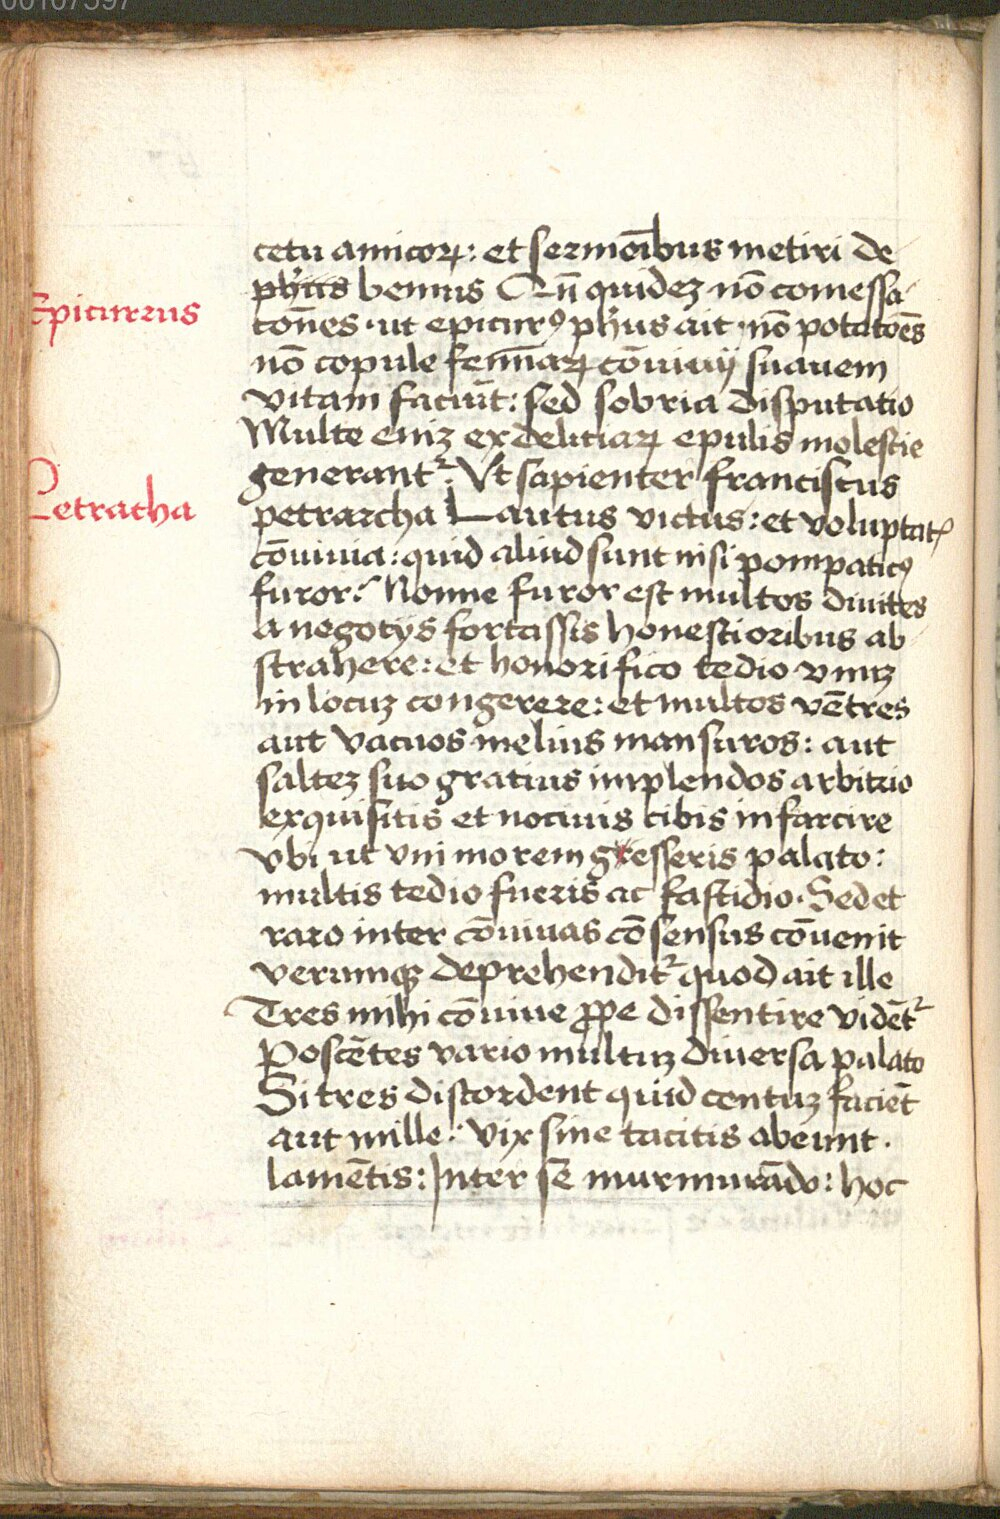 00107597
cetu amicoꝝ: et sermoībus metiri de
phiis bemus Qn̄ quidez nō comessa
Epicurrus
tōnes · ut epicurꝰ phūs ait · nō potatoēs
nō copule femīaꝝ cōuiuij suauem
vitam faciūt: sed sobria disputatio
Multe eniz ex delitiaꝝ epulis molestie
generantᷣ. Ut sapienter franciscus
Petracha
petrarcha Lautus victus: et voluptatꝭ
cōuiuia: quid aliud sunt nisi pompaticꝰ
furor? Nonne furor est multos diuites
a negotijs fortassis honestioribus ab
strahere: et honorifico tedio vnuz
in locuz congerere: et multos vētres
aut vacuos melius mansuros: aut
saltez suo gratius implendos arbitrio
exquisitis et nociuis cibis infarcire
vbi ut vni morem gesseris palato:
multis tedio fueris ac fastidio. Sed et
raro inter cōuiuas cōsensus cōuenit
verumqꝫ deprehenditᷣ quod ait ille
Tres mihi cōuiue ꝓpe dissentire vidētᷣ
Poscētes vario multuz diuersa palato
Si tres discordent quid centuz faciēt
aut mille? Vix sine tacitis abeunt.
lamētis: Inter se murmurādo: hoc